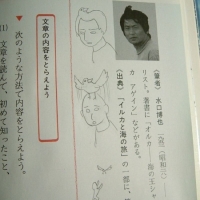 《筆者》 水口博也
リスト。著書に「オルカ――海の王シャ
カ アゲイン」などがある。
《出典》 「イルカと海の旅」の一部に、
文章の内容をとらえよう
▼次のような方法で内容をとらえよう。
(1) 文章を読んで、初めて知ったこと、